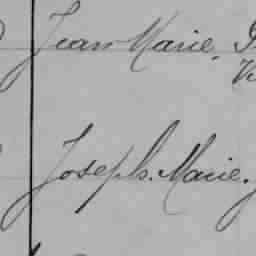 Jean Marie,
Joseph. Marie.